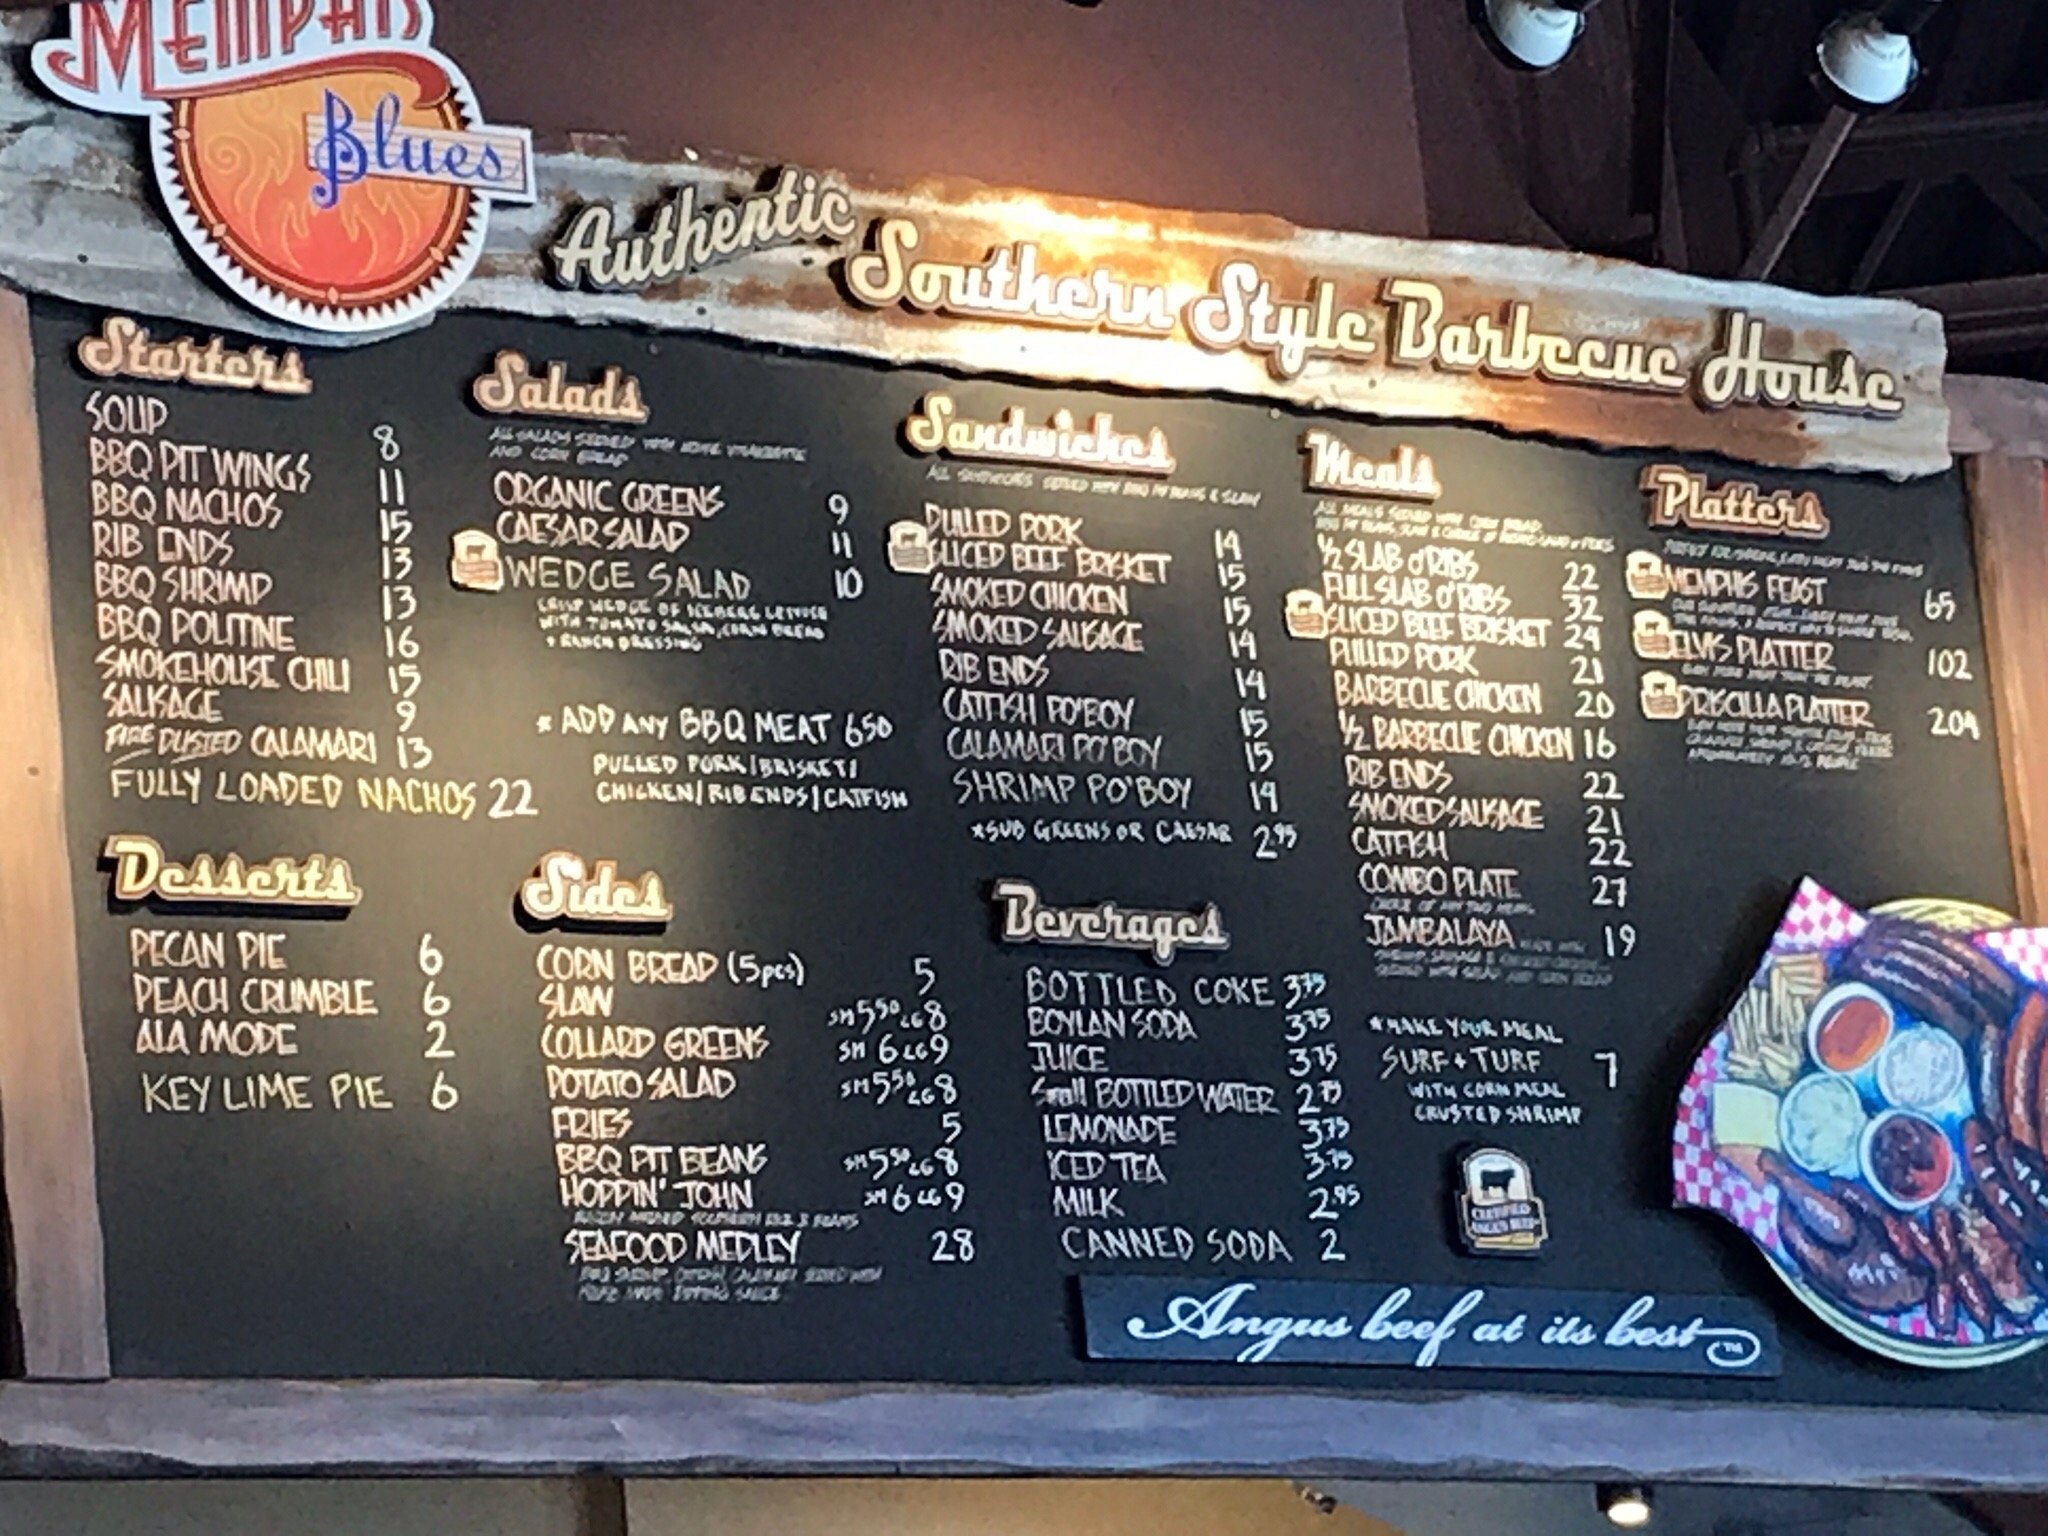 MEMPHIS
Blues
Authentic Southern Style Barbecue House
Starters
SOUP 8
BBQ PIT WINGS 11
BBQ NACHOS 15
RIB ENDS 13
BBQ SHRIMP 13
BBQ POUTINE 16
SMOKEHOUSE CHILI 15
SAUSAGE 9
FIRE DUSTED CALAMARI 13
FULLY LOADED NACHOS 22
Desserts
PECAN PIE 6
PEACH CRUMBLE 6
ALA MODE 2
KEY LIME PIE 6
Salads
ALL SALADS SERVED WITH HOUSE VINAIGRETTE
AND CORN BREAD
ORGANIC GREENS 9
CAESAR SALAD 11
WEDGE SALAD 10
CRISP WEDGE OF ICEBERG LETTUCE
WITH TOMATO SALSA, CORN BREAD
+ RANCH DRESSING
* ADD ANY BBQ MEAT 650
PULLED PORK/BRISKET/
CHICKEN/RIB ENDS/CATFISH
Sides
CORN BREAD (5pcs) 5
SLAW SM 5.50 LG 8
COLLARD GREENS SM 6 LG 9
POTATO SALAD SM 5.50 LG 8
FRIES 5
BBQ PIT BEANS SM 5.50 LG 8
HOPPIN' JOHN SM 6 LG 9
SOUTHERN RICE & BEANS
SEAFOOD MEDLEY 28
BBQ SHRIMP, CATFISH, CALAMARI SERVED WITH
HOUSE MADE DIPPING SAUCE
Sandwiches
ALL SANDWICHES SERVED WITH BBQ PIT BEANS & SLAW
PULLED PORK 14
SLICED BEEF BRISKET 15
SMOKED CHICKEN 15
SMOKED SAUSAGE 14
RIB ENDS 14
CATFISH PO'BOY 15
CALAMARI PO'BOY 15
SHRIMP PO'BOY 14
*SUB GREENS OR CAESAR 2.95
Beverages
BOTTLED COKE 3.75
BOYLAN SODA 3.75
JUICE 3.75
Small BOTTLED WATER 2.75
LEMONADE 3.75
ICED TEA 3.75
MILK 2.95
CANNED SODA 2
Meals
ALL MEALS SERVED WITH CORN BREAD,
BBQ PIT BEANS, SLAW & CHOICE OF POTATO SALAD or FRIES
½ SLAB O'RIBS 22
FULL SLAB O'RIBS 32
SLICED BEEF BRISKET 24
PULLED PORK 21
BARBECUE CHICKEN 20
½ BARBECUE CHICKEN 16
RIB ENDS 22
SMOKED SAUSAGE 21
CATFISH 22
COMBO PLATE 27
CHOICE OF ANY TWO MEATS
JAMBALAYA MADE WITH 19
SHRIMP, SAUSAGE &
SERVED WITH SALAD AND CORN BREAD
*MAKE YOUR MEAL
SURF + TURF 7
WITH CORN MEAL
CRUSTED SHRIMP
CERTIFIED
ANGUS BEEF
Platters
MEMPHIS FEAST 65
ELVIS PLATTER 102
PRISCILLA PLATTER 204
Angus beef at its best™